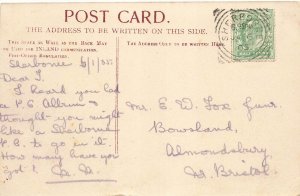 POST CARD.
THE ADDRESS TO BE WRITTEN ON THIS SIDE.
This space as Well as the Back May
be Used for INLAND communication.
Post-Office Regulations.
The Address Only to be Written Here.
Dear
I heard you had
a P.C Album
thought you might
like a
P.C. to go in it.
How many have you
got?
Mr. E. W. Fox Junr.
Bowsland,
Almondsbury
Nr. Bristol